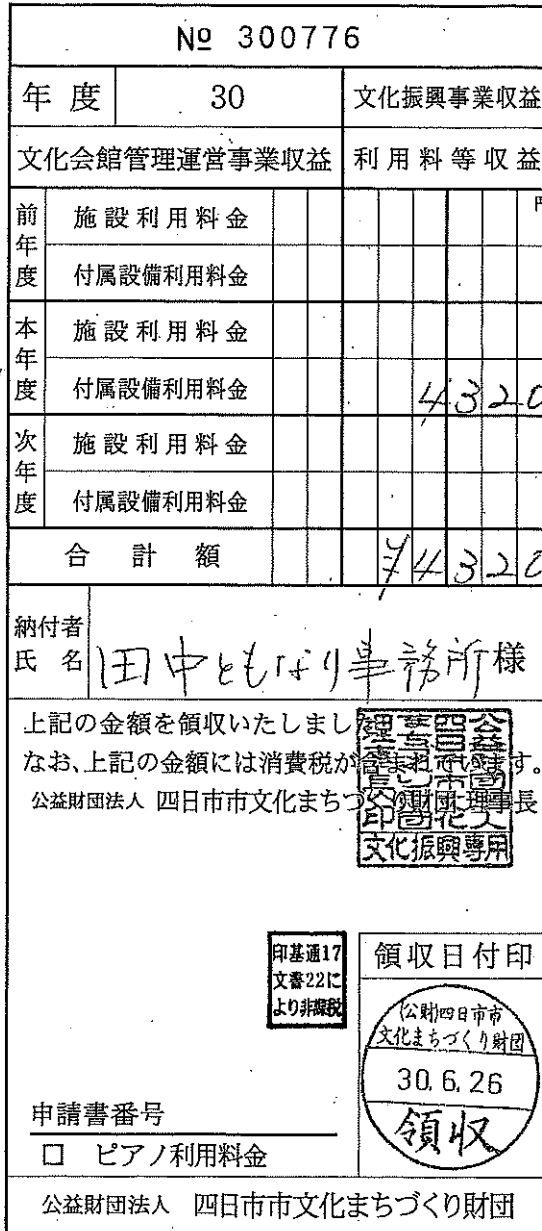 № 300776
年度 30 文化振興事業収益
文化会館管理運営事業収益 利用料等収益
円
前年度 施設利用料金
付属設備利用料金
本年度 施設利用料金
付属設備利用料金 4320
次年度 施設利用料金
付属設備利用料金
合計額 ¥4320
納付者氏名 田中ともはり事務所様
上記の金額を領収いたしまし
なお、上記の金額には消費税が含まれています。
公益財団法人 四日市市文化まちづくり財団理事長
文化振興専用
印基通17
文書22に
より非課税
領収日付印
(公財)四日市市
文化まちづくり財団
30.6.26
領収
申請書番号
□ ピアノ利用料金
公益財団法人 四日市市文化まちづくり財団